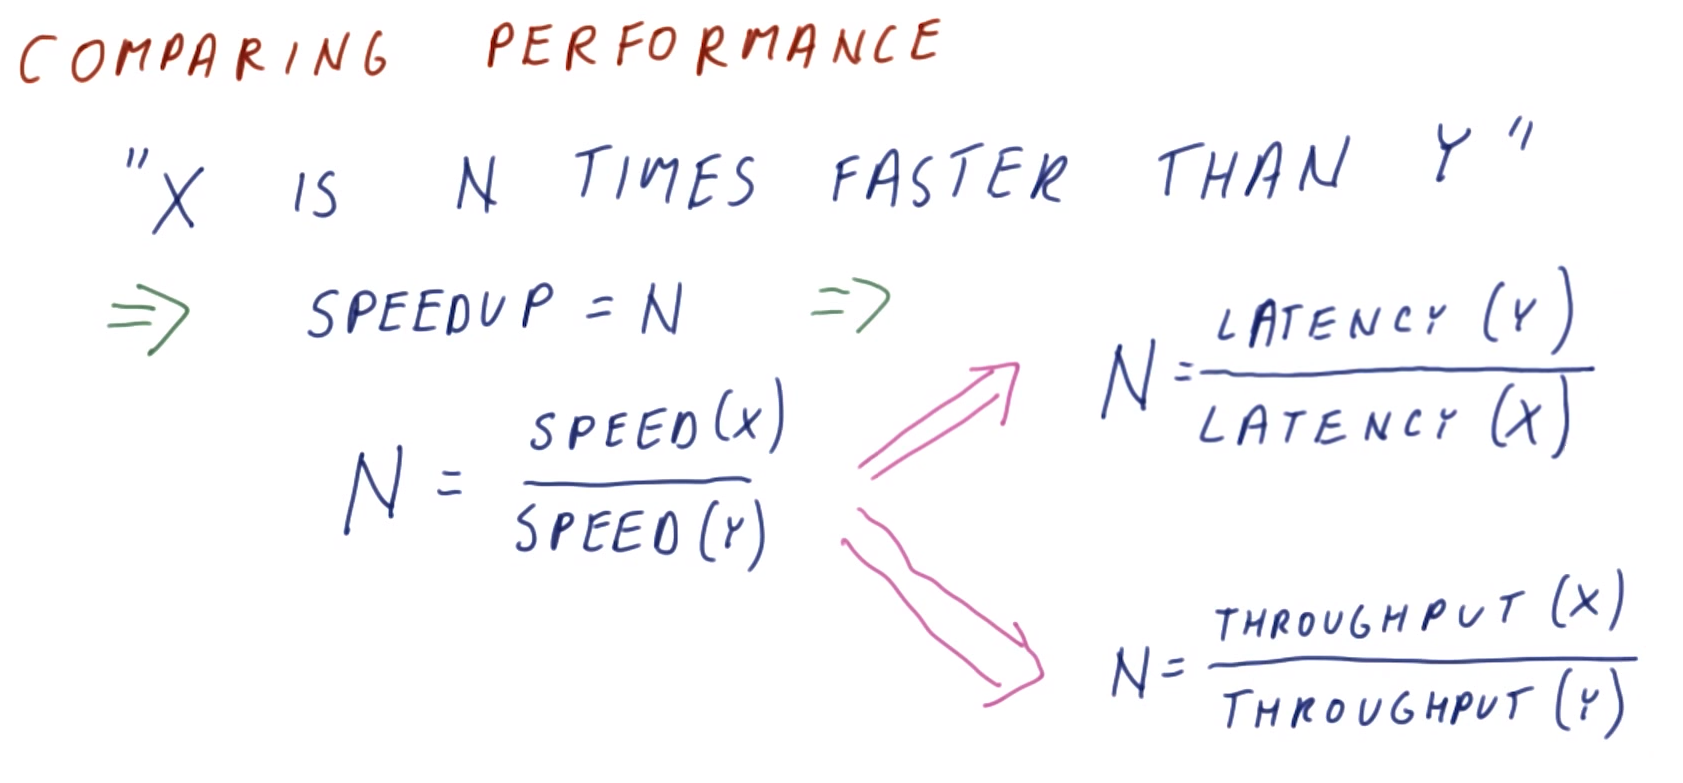 COMPARING PERFORMANCE
"X IS N TIMES FASTER THAN Y"
⇒ SPEEDUP = N ⇒
N = SPEED(X) / SPEED(Y)
N = LATENCY (Y) / LATENCY (X)
N = THROUGHPUT (X) / THROUGHPUT (Y)